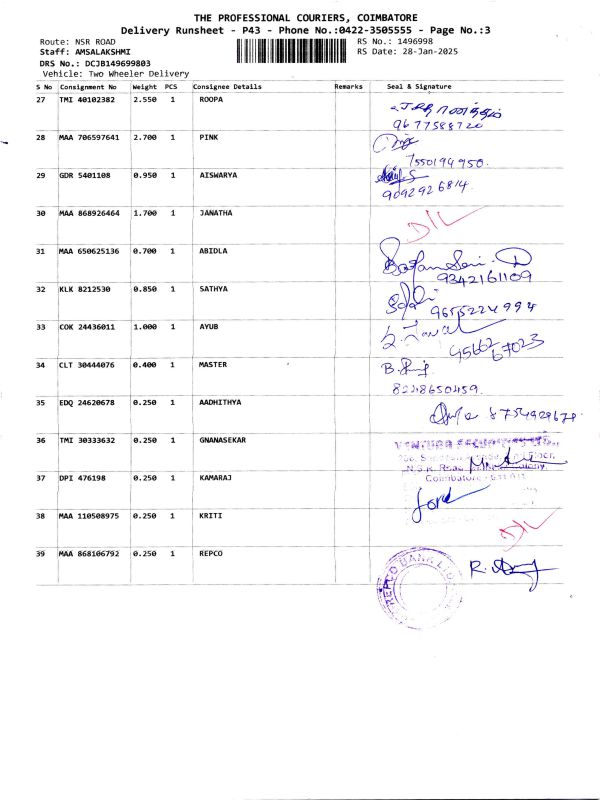 THE PROFESSIONAL COURIERS, COIMBATORE
Delivery Runsheet - P43 - Phone No.:0422-3505555 - Page No.:3
Route: NSR ROAD RS No.: 1496998
Staff: AMSALAKSHMI RS Date: 28-Jan-2025
DRS No.: DCJB149699803
Vehicle: Two Wheeler Delivery
S No Consignment No Weight PCS Consignee Details Remarks Seal & Signature
27 TMI 40102382 2.550 1 ROOPA
9677588720
28 MAA 706597641 2.700 1 PINK
7550194950.
29 GDR 5401108 0.950 1 AISWARYA
9092926814
30 MAA 868926464 1.700 1 JANATHA D/L
31 MAA 650625136 0.700 1 ABIDLA
9342161109
32 KLK 8212530 0.850 1 SATHYA
9655224994
33 COK 24436011 1.000 1 AYUB
4566267023
34 CLT 30444076 0.400 1 MASTER
8248650459.
35 EDQ 24620678 0.250 1 AADHITHYA
36 TMI 30333632 0.250 1 GNANASEKAR
N.S.R. Road
Coimbatore
37 DPI 476198 0.250 1 KAMARAJ
38 MAA 110508975 0.250 1 KRITI D/L
39 MAA 868106792 0.250 1 REPCO
REPCO BANK LTD